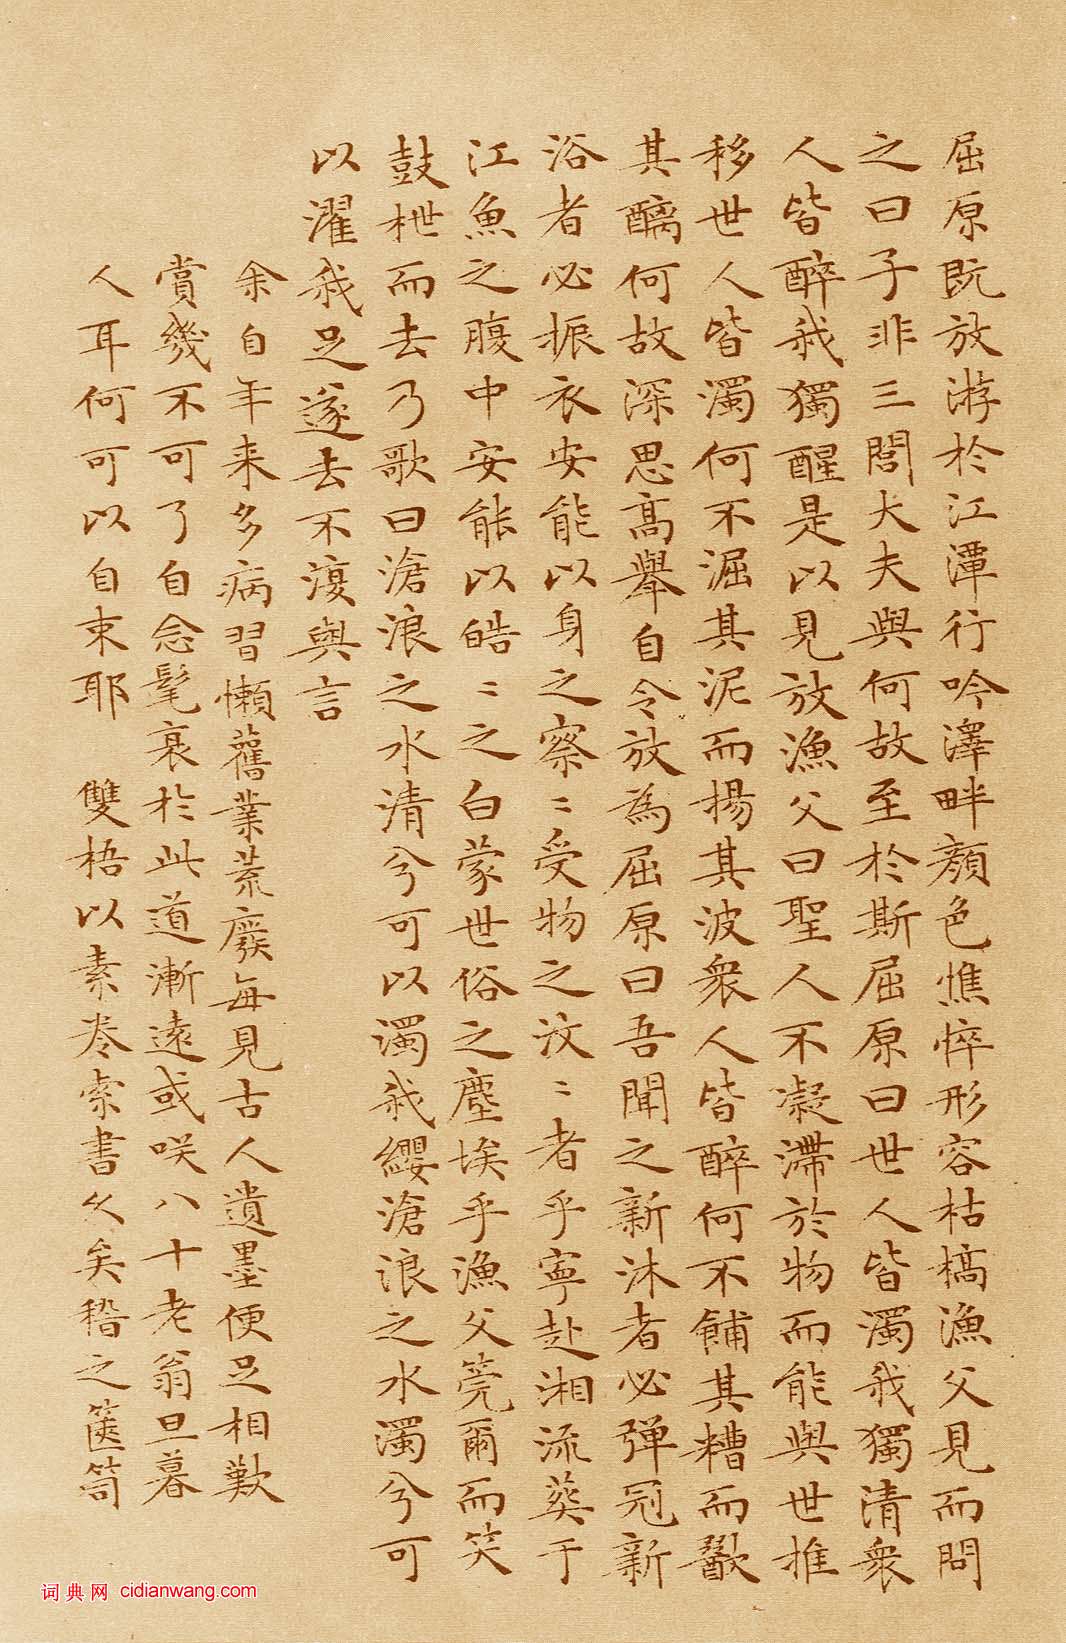 屈原既放游於江潭行吟澤畔顏色憔悴形容枯槁漁父見而問
之曰子非三閭大夫與何故至於斯屈原曰世人皆濁我獨清衆
人皆醉我獨醒是以見放漁父曰聖人不凝滯於物而能與世推
移世人皆濁何不淈其泥而揚其波衆人皆醉何不餔其糟而歠
其醨何故深思高舉自令放為屈原曰吾聞之新沐者必彈冠新
浴者必振衣安能以身之察〻受物之汶〻者乎寧赴湘流葬于
江魚之腹中安能以皓〻之白蒙世俗之塵埃乎漁父莞爾而笑
鼓枻而去乃歌曰滄浪之水清兮可以濯我纓滄浪之水濁兮可
以濯我足遂去不復與言
余自年来多病習懶舊業荒廢每見古人遺墨便足相歎
賞幾不可了自念髦衰於此道漸遠或咲八十老翁旦暮
人耳何可以自束耶 雙梧以素卷索書久矣稽之篋笥
词典网 cidianwang.com